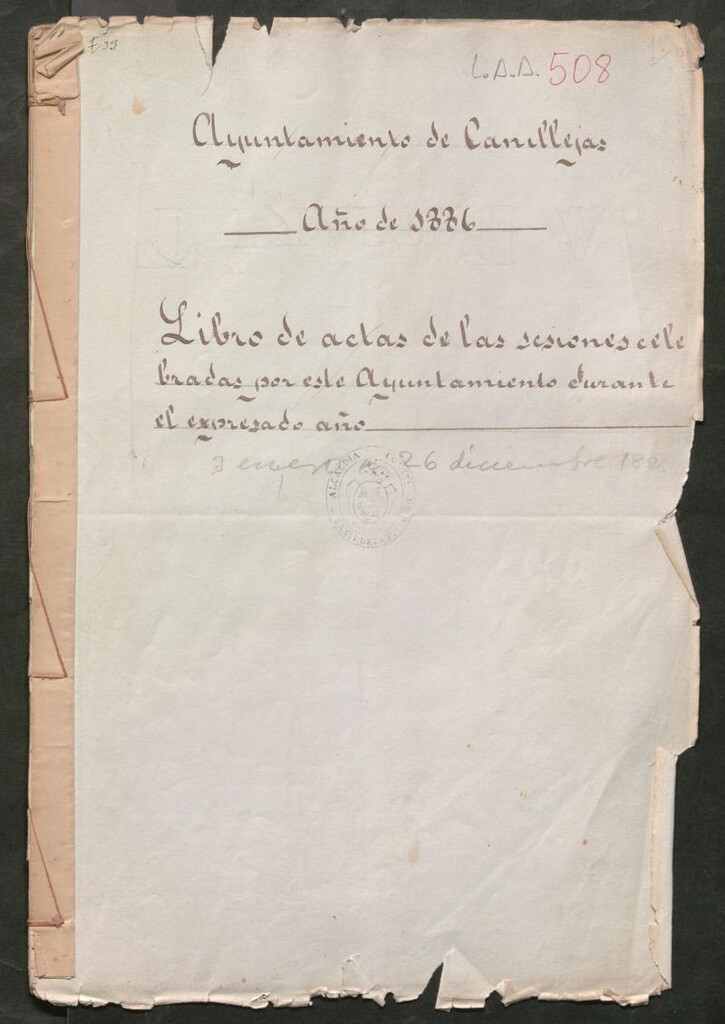 E 33
L.A.A. 508
Ayuntamiento de Canillejas
Año de 1886
Libro de actas de las sesiones cele
bradas por este Ayuntamiento durante
el expresado año
3 enero a 26 diciembre 1886
ALCALDIA
CANILLEJAS